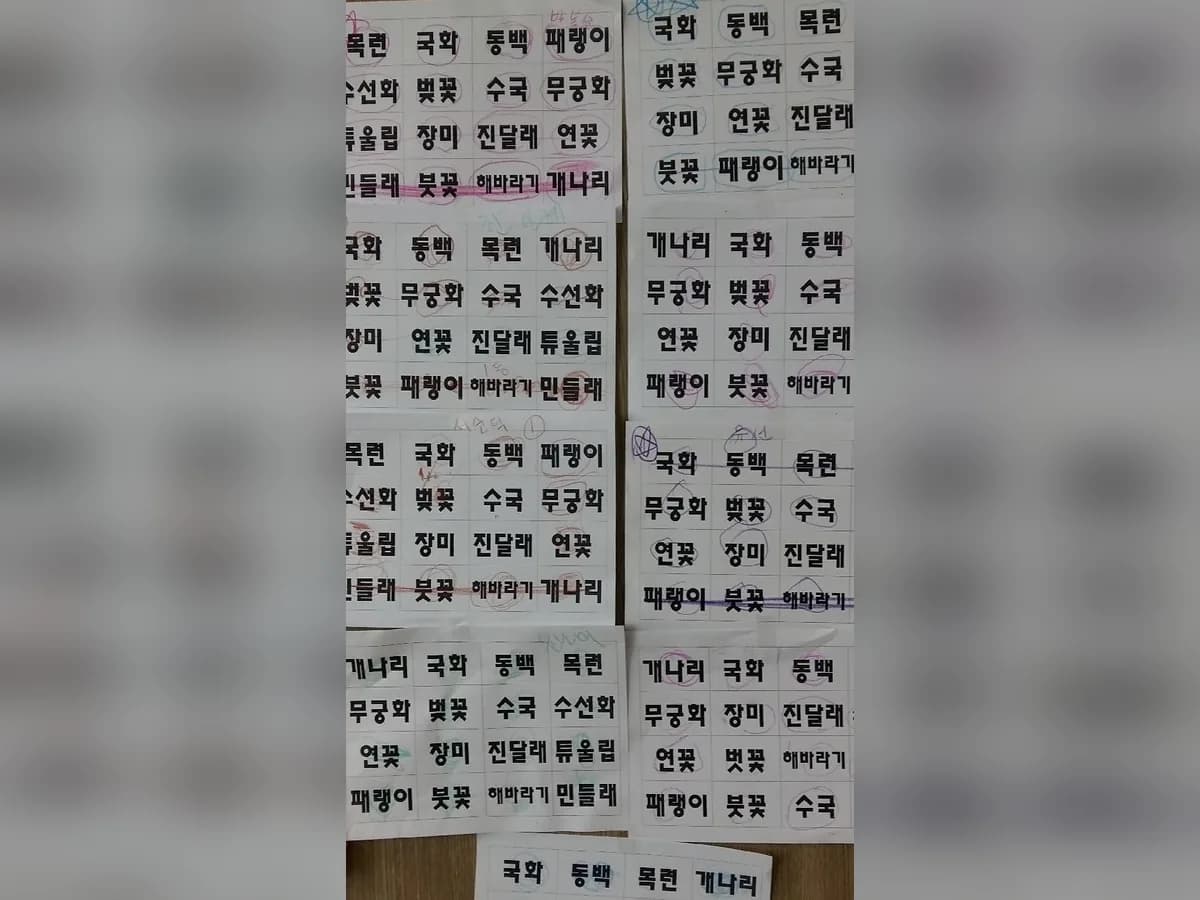 목련 국화 동백 패랭이
수선화 벚꽃 수국 무궁화
튜울립 장미 진달래 연꽃
민들래 붓꽃 해바라기 개나리
국화 동백 목련 개나리
벚꽃 무궁화 수국 수선화
장미 연꽃 진달래 튜울립
붓꽃 패랭이 해바라기 민들래
목련 국화 동백 패랭이
수선화 벚꽃 수국 무궁화
튜울립 장미 진달래 연꽃
민들래 붓꽃 해바라기 개나리
개나리 국화 동백 목련
무궁화 벚꽃 수국 수선화
연꽃 장미 진달래 튜울립
패랭이 붓꽃 해바라기 민들래
국화 동백 목련
벚꽃 무궁화 수국
장미 연꽃 진달래
붓꽃 패랭이 해바라기
개나리 국화 동백
무궁화 벚꽃 수국
연꽃 장미 진달래
패랭이 붓꽃 해바라기
국화 동백 목련
무궁화 벚꽃 수국
연꽃 장미 진달래
패랭이 붓꽃 해바라기
개나리 국화 동백
무궁화 장미 진달래
연꽃 벗꽃 해바라기
패랭이 붓꽃 수국
국화 동백 목련 개나리